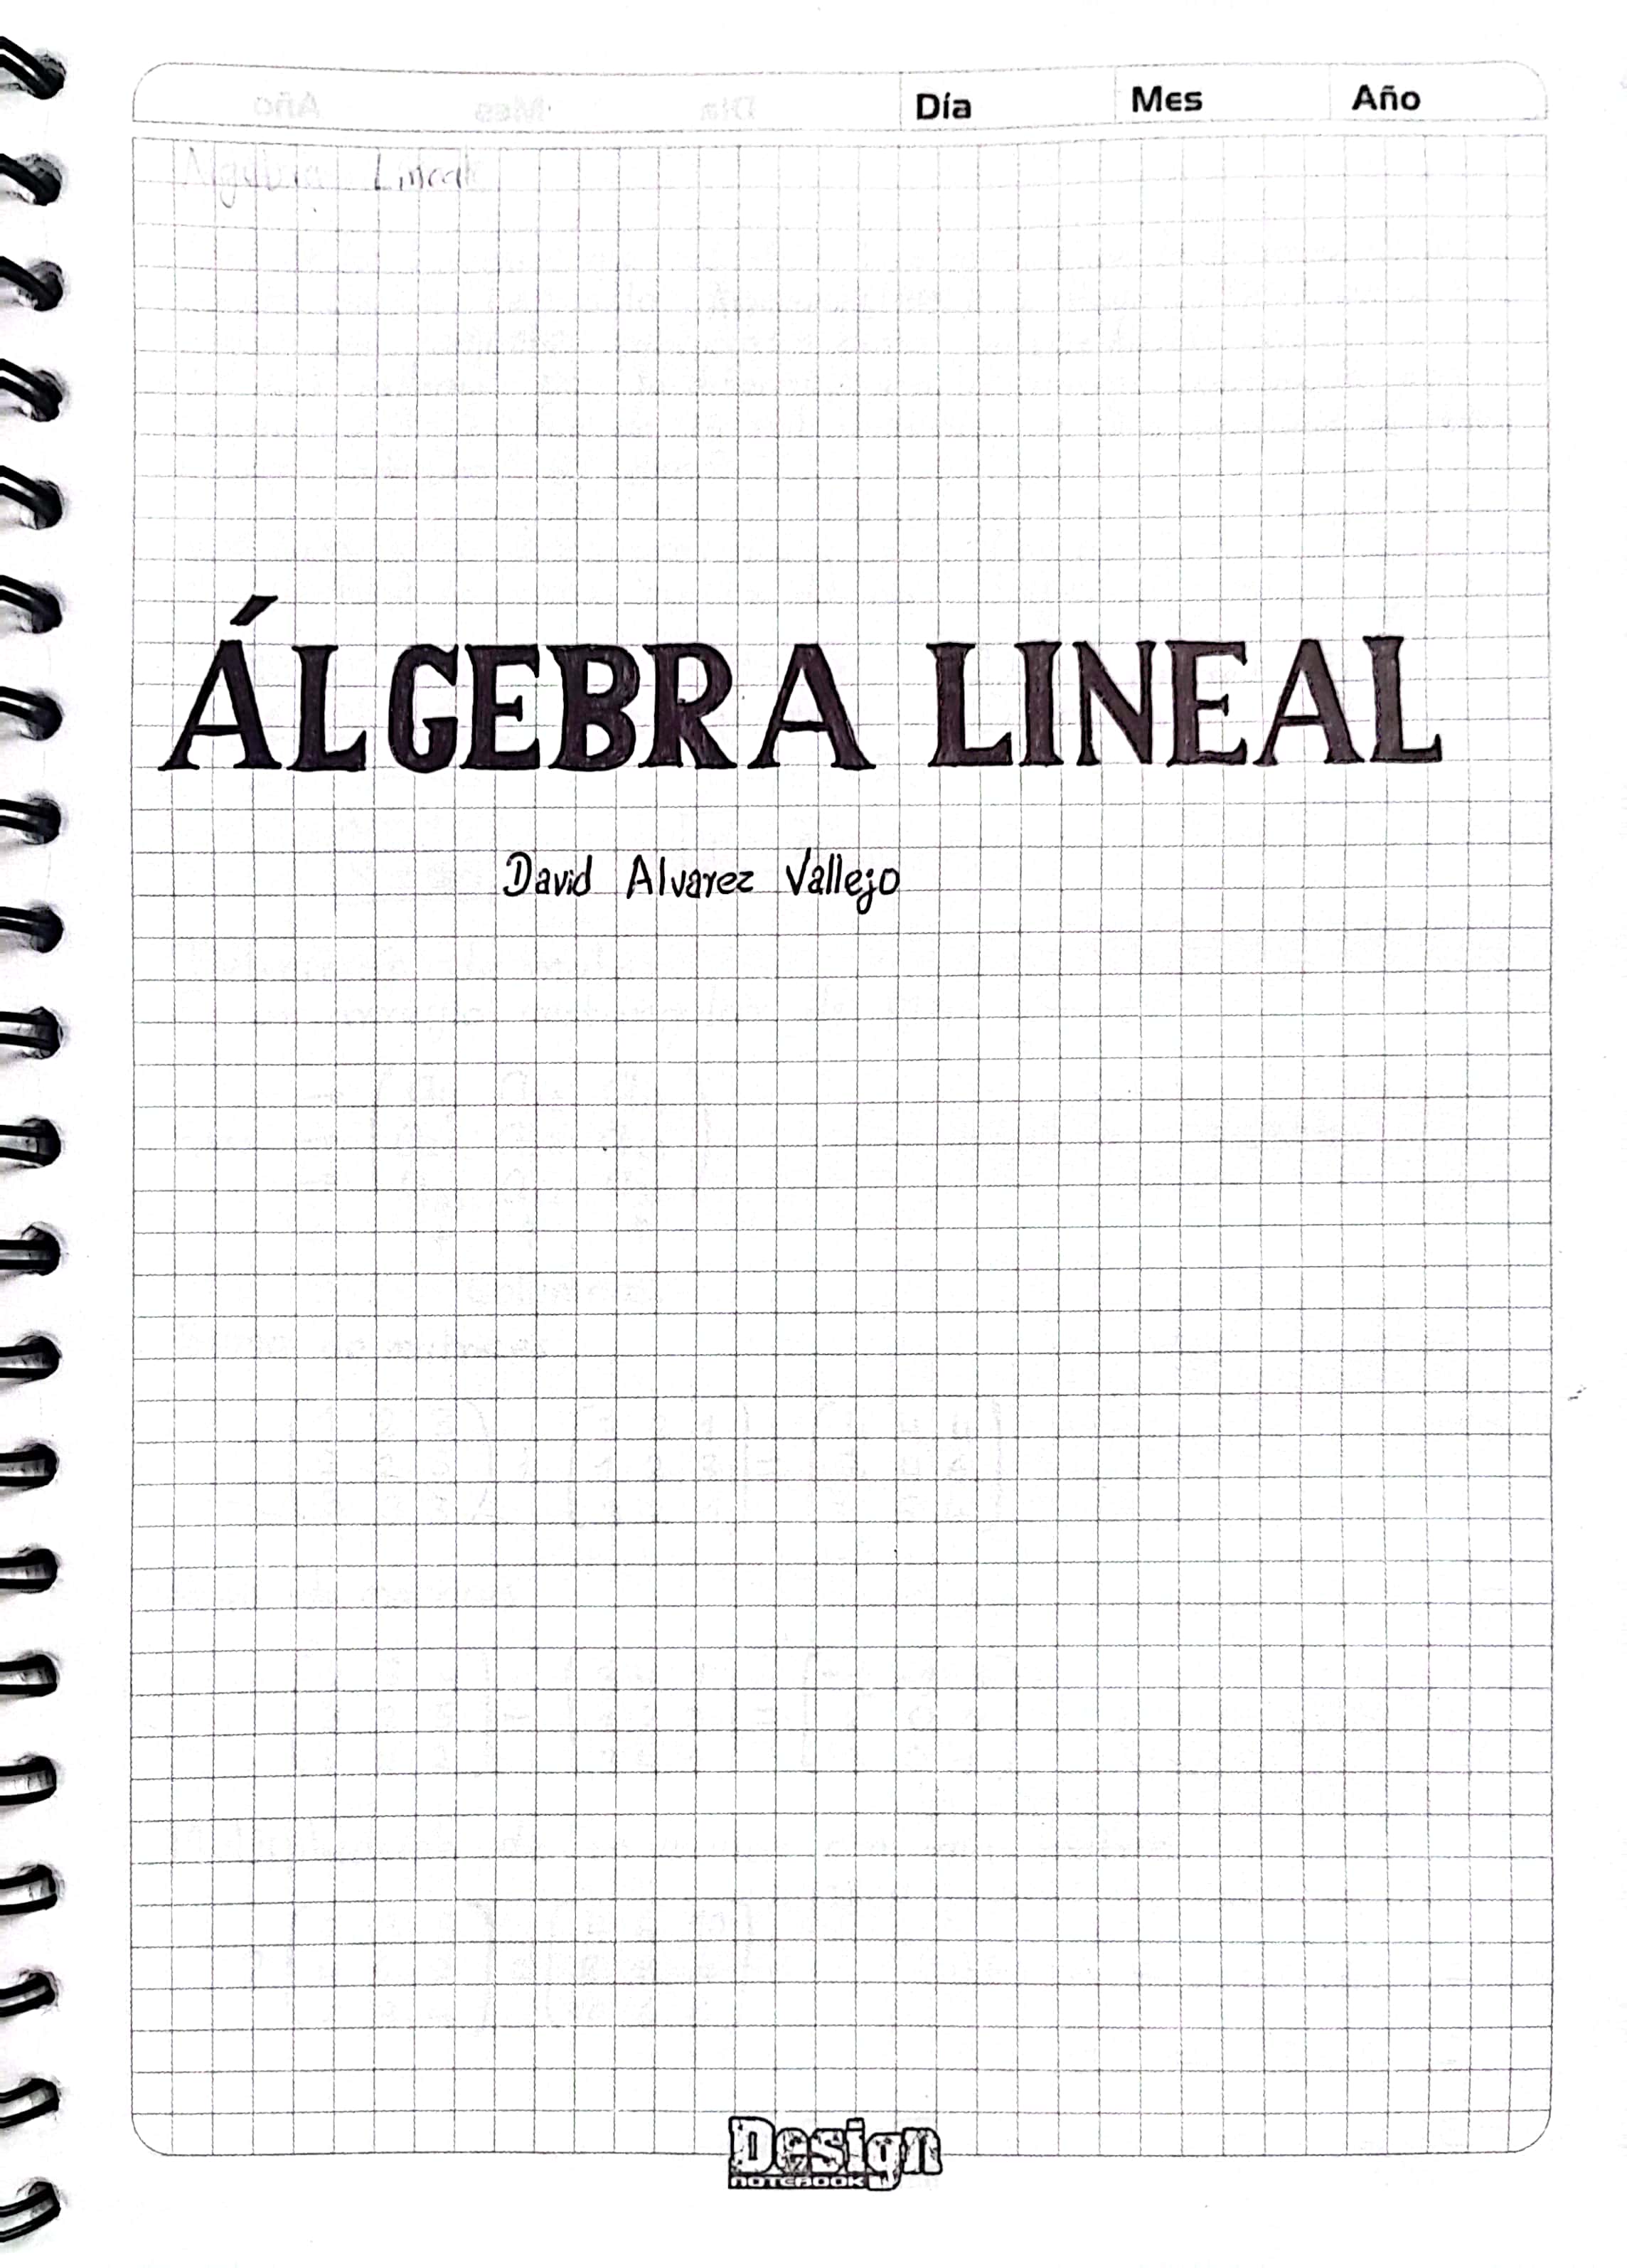 Día Mes Año
Algebra Lineal
ÁLGEBRA LINEAL
David Alvarez Vallejo
Design
NOTEBOOK